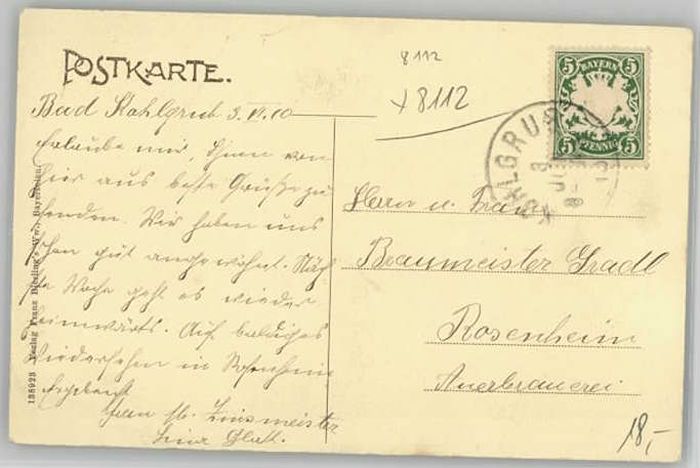 POSTKARTE.
8112
+8112
Bad Kohlgrub 3.VI.10
Erlaube mir, Ihnen von
hier aus beste Grüße zu
senden. Wir haben uns
schon gut angewöhnt. Näch
ste Woche geht es wieder
heimwärts. Auf baldiges
Wiedersehen in Rosenheim
Frau M. Zinsmeister
BAYERN
5 5
5 5
PFENNIG
KOHLGRUB
Herrn u. Frau
Braumeister Gradl
Rosenheim
Auerbrauerei
18,-
138923 Verlag Franz